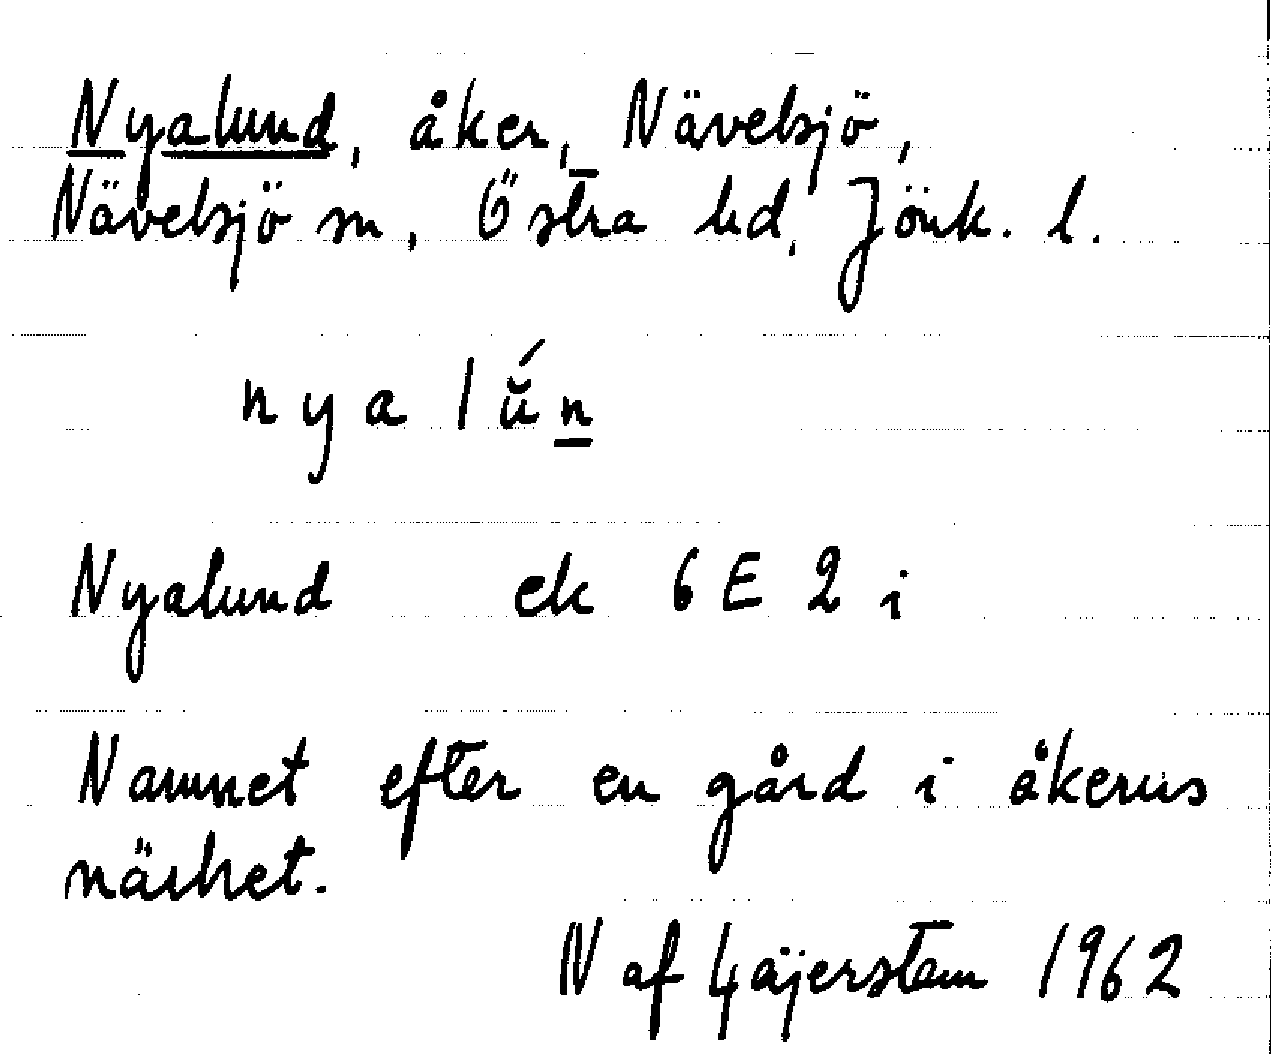 Nyalund, åker, Nävelsjö,
Nävelsjö sn, Östra hd, Jönk. l.
nyalŭ́n
Nyalund ek 6E2i
Namnet efter en gård i åkerns
närhet.
N af Gäijerstam 1962